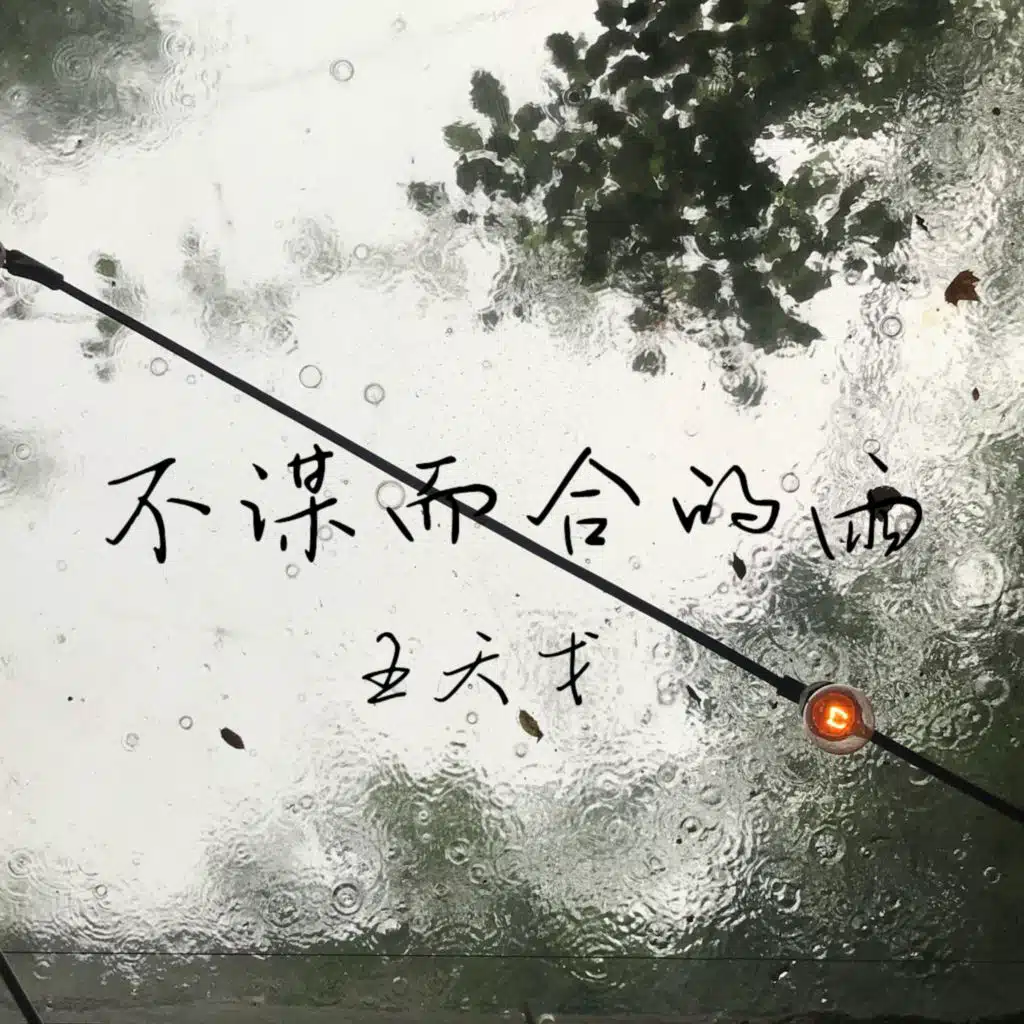 不谋而合的雨
王天戈